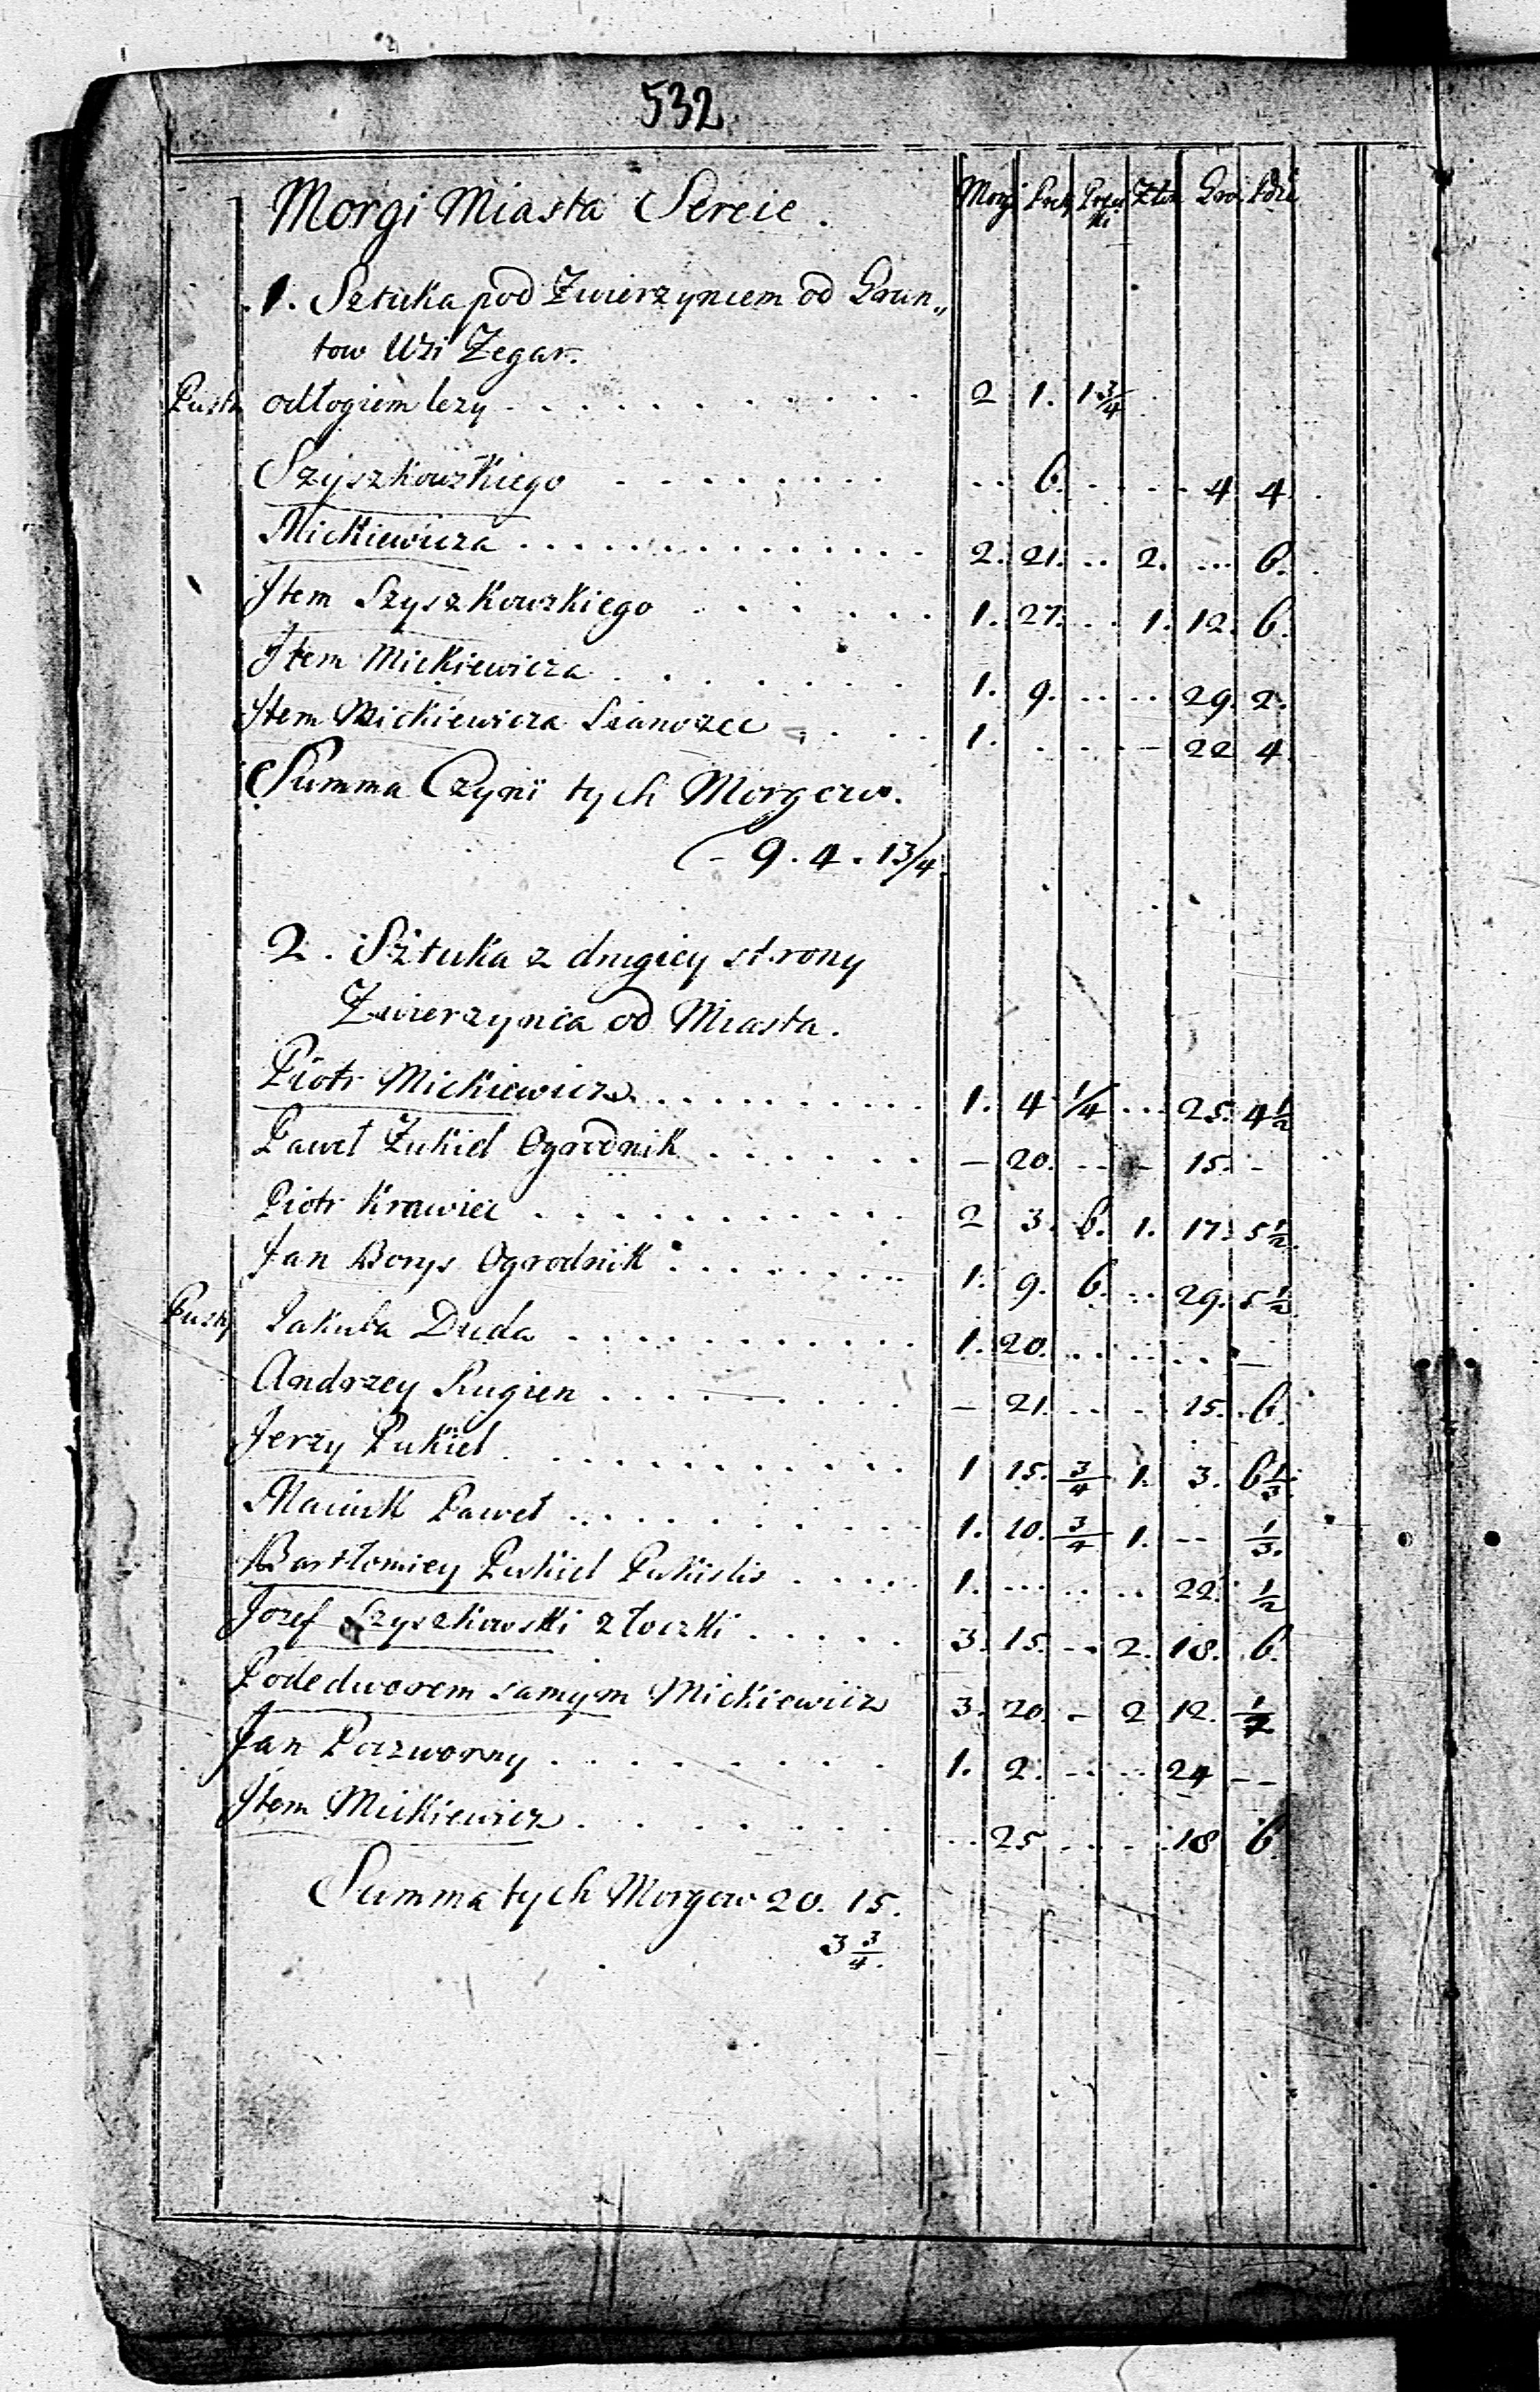 532
Morgi Miasta Sereie. Morgi Pręty Zło Gro
1. Sztuka pod Zwierzyncem od Grun„
tow Wsi Zegar.
odłogiem lezy . . . . . . . . . . . 2 1. 1 3/4
Szyszkowskiego - - - - - - - - . . 6. . . . . 4 4
Mickiewicza . . . . . . . . . . . . . . 2. 21. .. 2. ... 6.
Jtem Szyszkowskiego . . . . . . . 1. 27. .. 1. 12. 6.
Jtem Mickiewicza . . . . . . . 1. 9. .. .. 29. 2.
Jtem Mickiewicza Sianozęc . . . . 1. . . . - 22 4
Summa Czyni tych Morgow.
- 9. 4. 1 3/4
2. Sztuka z drugiey strony
Zwierzynca od Miasta.
Piotr Mickiewicz . . . . . . . . . . 1. 4 1/4 ... 25. 4 1/2
Paweł Zukiel Ogrodnik . . . . . . . - 20. .. - 15. -
Piotr Krawiec . . . . . . . . . . . 2 3. 6. 1. 17. 5 1/2
Jan Borys Ogrodnik . . . . . . . . 1. 9. 6. .. 29. 5 1/2
Pusty Jakuba Duda . . . . . . . . . . . 1. 20. .. .. .. -
Andrzey Rugien . . . . . . . . . - 21. .. . 15. 6.
Jerzy Pukiel . . . . . . . . . . . 1 15. 3/4 1. 3. 6 1/3
Paweł . . . . . . . . . . 1. 10. 3/4 1. -- 1/3.
Bartłomiey Pukiel Pukislis . . . . . 1. ... .. .. 22. 1/2
Jozef Szyszkowski z Łoczki . . . . . 3. 15. -. 2. 18. 6.
Podedworem samym Mickiewicz 3. 20. - 2 12. 1/2
Jan Pozworny . . . . . . . . . 1. 2. .. .. 24 --
Jtem Mickiewicz . . . . . . . . .. 25 . . . . 18 6.
Summa tych Morgow 20. 15.
3 3/4.